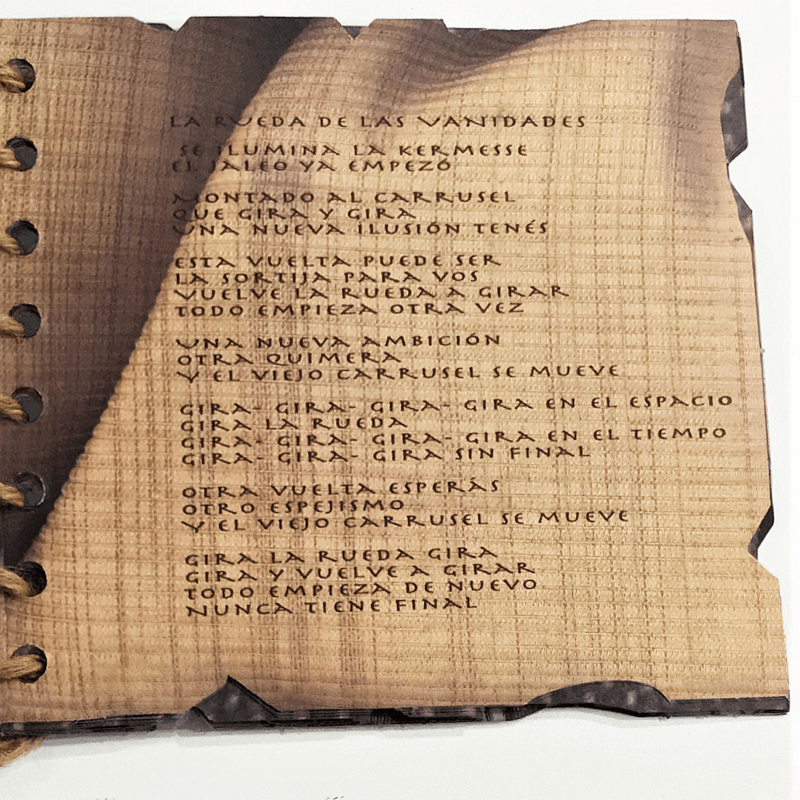 LA RUEDA DE LAS VANIDADES
SE ILUMINA LA KERMESSE
EL JALEO YA EMPEZÓ
MONTADO AL CARRUSEL
QUE GIRA Y GIRA
UNA NUEVA ILUSIÓN TENÉS
ESTA VUELTA PUEDE SER
LA SORTIJA PARA VOS
VUELVE LA RUEDA A GIRAR
TODO EMPIEZA OTRA VEZ
UNA NUEVA AMBICIÓN
OTRA QUIMERA
Y EL VIEJO CARRUSEL SE MUEVE
GIRA- GIRA- GIRA- GIRA EN EL ESPACIO
GIRA LA RUEDA
GIRA- GIRA- GIRA- GIRA EN EL TIEMPO
GIRA- GIRA- GIRA SIN FINAL
OTRA VUELTA ESPERÁS
OTRO ESPEJISMO
Y EL VIEJO CARRUSEL SE MUEVE
GIRA LA RUEDA GIRA
GIRA Y VUELVE A GIRAR
TODO EMPIEZA DE NUEVO
NUNCA TIENE FINAL